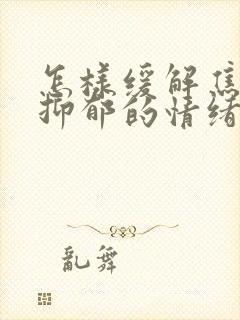 怎样缓解焦
抑郁的情绪
乱舞